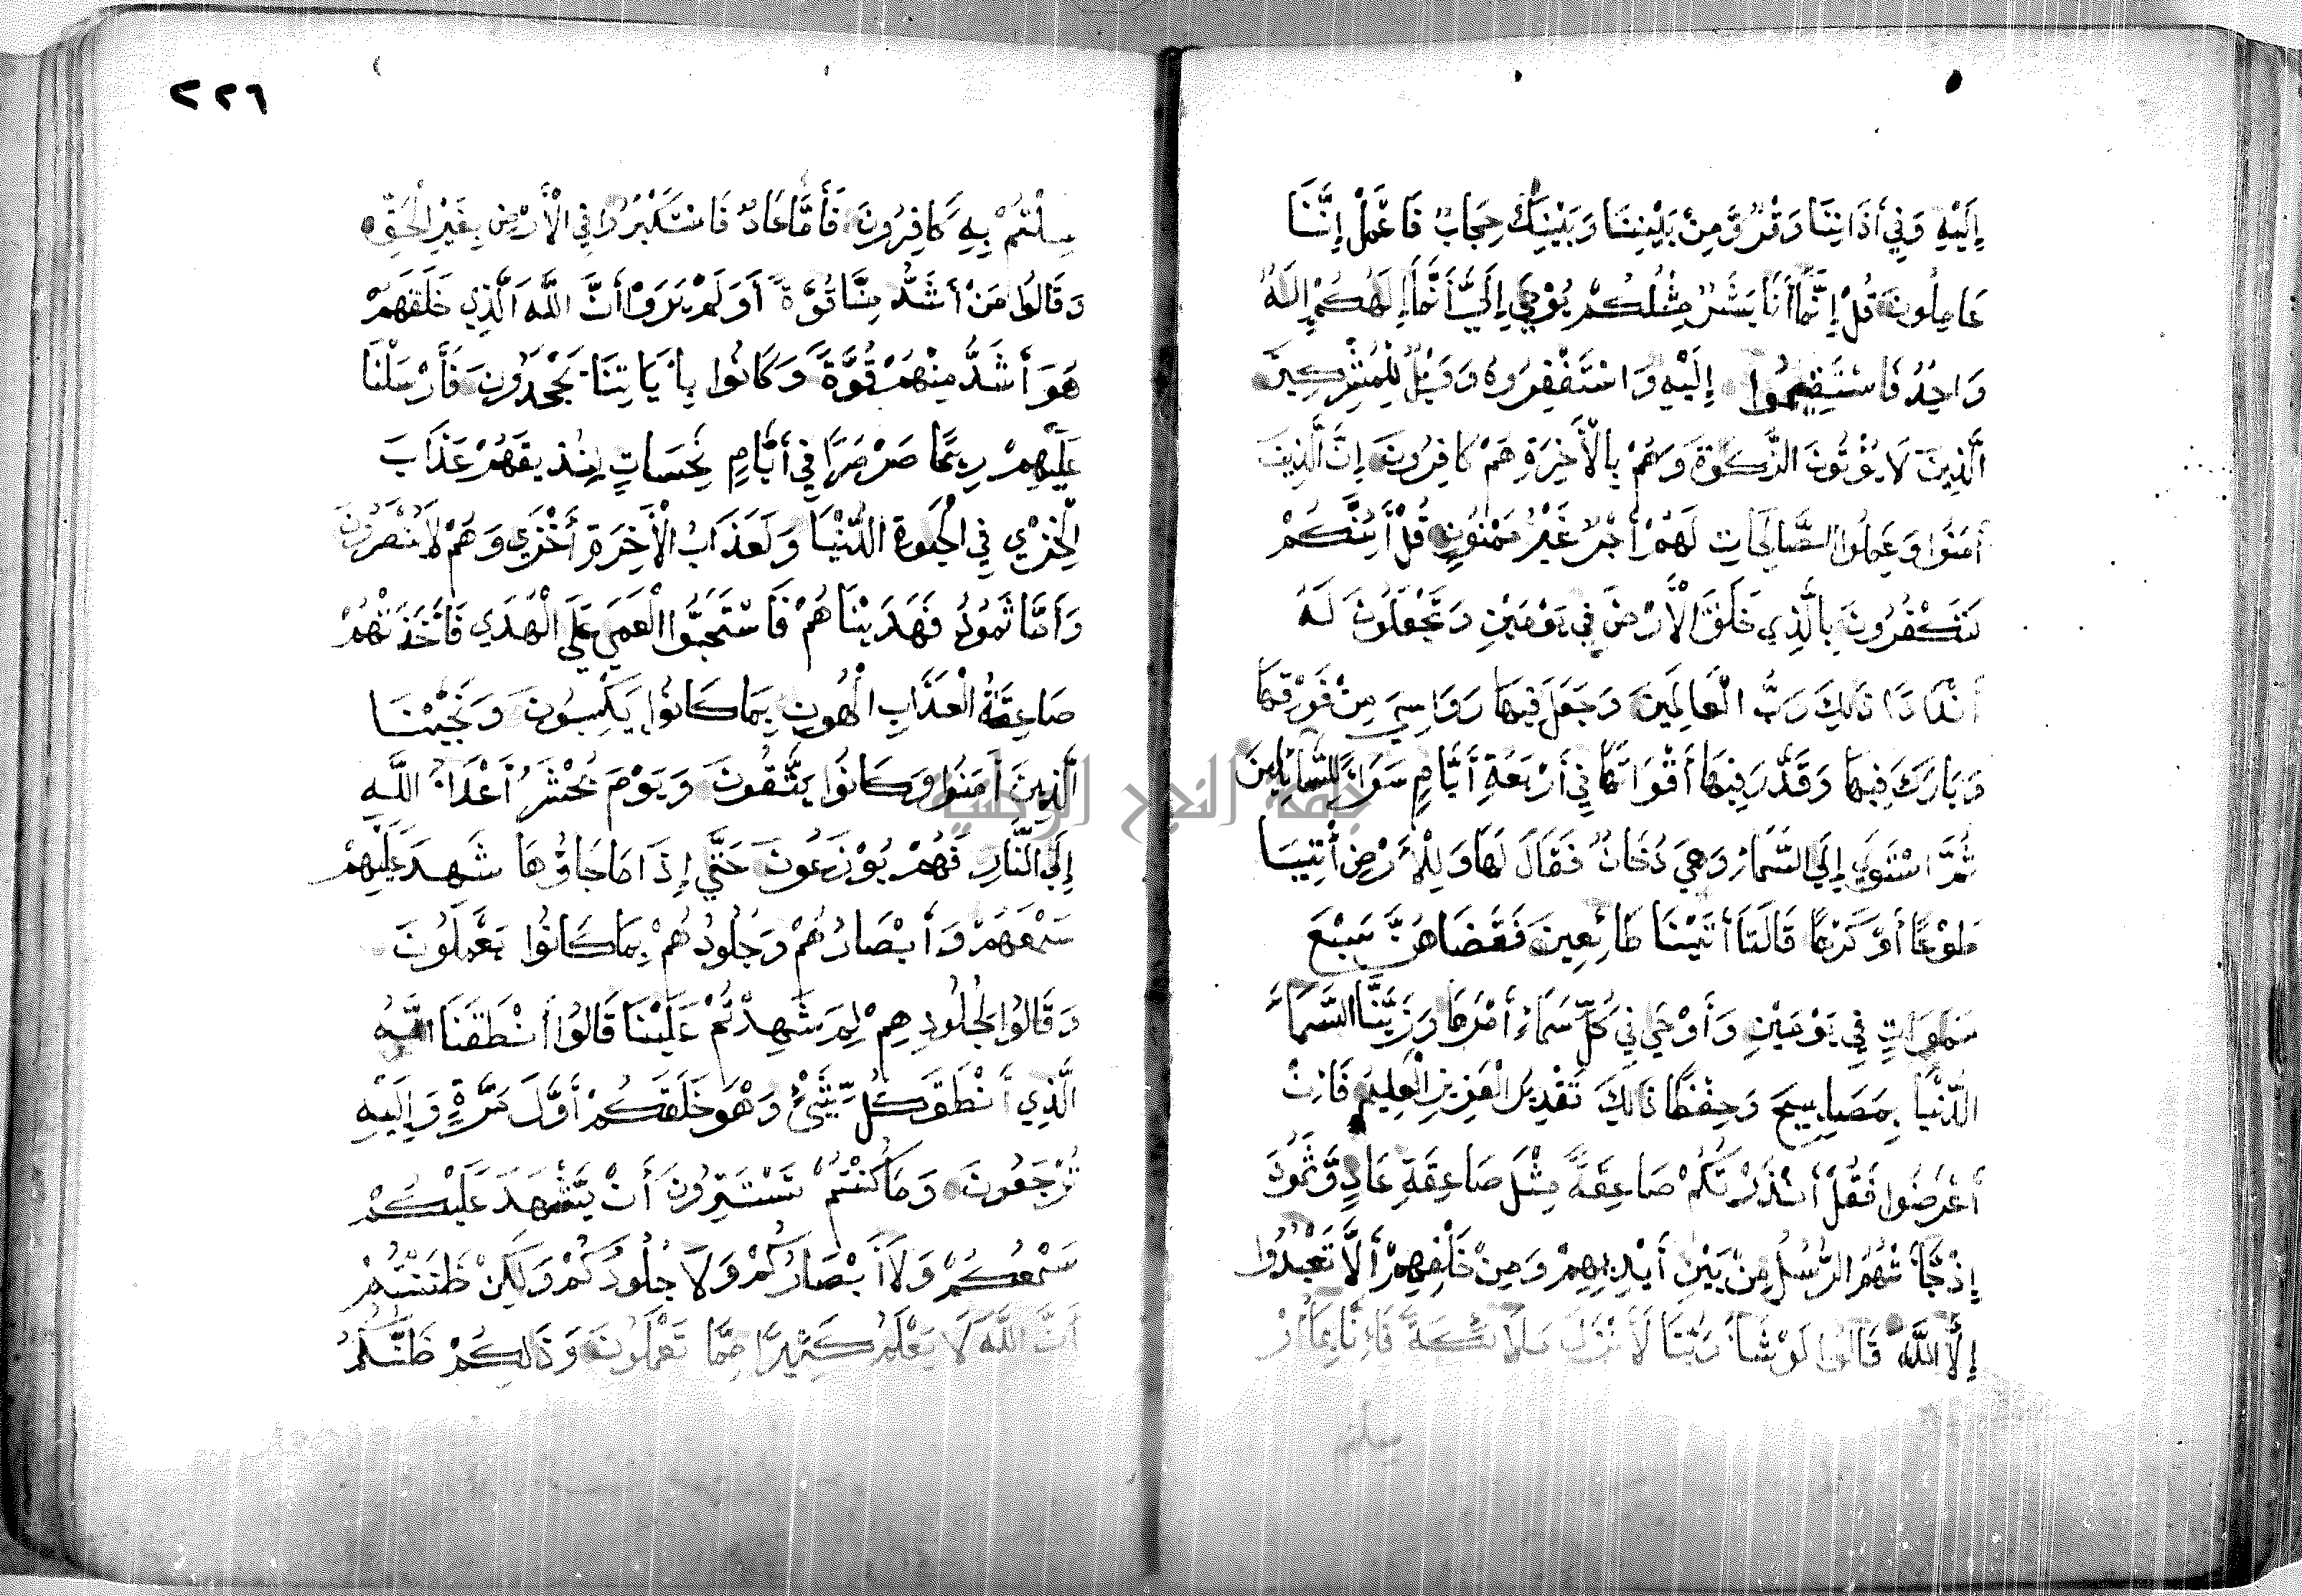 إِلَيْهِ وَفِي أَذَانِنَا وَقْرٌ وَّمِنْ بَيْنِنَا وَبَيْنِكَ حِجَابٌ فَاعْمَلْ إِنَّنَا
عَامِلُونَ قُلْ إِنَّمَا أَنَا بَشَرٌ مِثْلُكُمْ يُوحَي إِلَيَّ أَنَّمَا إِلَهُكُمْ إِلَهٌ
وَاحِدٌ فَاسْتَقِيمُوا إِلَيْهِ وَاسْتَغْفِرُوهُ وَوَيْلٌ لِلْمُشْرِكِينَ
الَّذِينَ لَا يُؤْتُونَ الزَّكَوٰةَ وَهُمْ بِالْأَخِرَةِ هُمْ كَافِرُونَ إِنَّ الَّذِينَ
أَمَنُوا وَعَمِلُوا الصَّالِحَاتِ لَهُمْ أَجْرٌ غَيْرُ مَمْنُونٍ قُلْ أَئِنَّكُمْ
لَتَكْفُرُونَ بِالَّذِي خَلَقَ الْأَرْضَ فِي يَوْمَيْنِ وَتَجْعَلُونَ لَهُ
أَنْدَادًا ذَلِكَ رَبُّ الْعَالَمِينَ وَجَعَلَ فِيهَا رَوَاسِيَ مِنْ فَوْقِهَا
وَبَارَكَ فِيهَا وَقَدَّرَ فِيهَا أَقْوَاتَهَا فِي أَرْبَعَةِ أَيَّامٍ سَوَاءً لِلسَّائِلِينَ
ثُمَّ اسْتَوَي إِلَي السَّمَاءِ وَهِيَ دُخَانٌ فَقَالَ لَهَا وَلِلْأَرْضِ أْتِيَا
طَوْعًا أَوْ كَرْهًا قَالَتَا أَتَيْنَا طَائِعِينَ فَقَضَاهُنَّ سَبْعَ
سَمَوَاتٍ فِي يَوْمَيْنِ وَأَوْحَي فِي كُلِّ سَمَاءٍ أَمْرَهَا وَزَيَّنَّا السَّمَاءَ
الدُّنْيَا بِمَصَابِيحَ وَحِفْظًا ذَلِكَ تَقْدِيرُ الْعَزِيزِ الْعَلِيمِ فَإِنْ
أَعْرَضُوا فَقُلْ أَنْذَرْتُكُمْ صَاعِقَةً مِثْلَ صَاعِقَةِ عَادٍ وَّثَمُودَ
إِذْ جَاءَتْهُمُ الرُّسُلُ مِنْ بَيْنِ أَيْدِيهِمْ وَمِنْ خَلْفِهِمْ أَلَّا تَعْبُدُوا
إِلَّا اللَّهَ قَالُوا لَوْ شَاءَ رَبُّنَا لَأَنْزَلَ مَلَائِكَةً فَإِنَّا بِمَا أُرْ
سلتم
٢٢٦
سِلْتُمْ بِهِ كَافِرُونَ فَأَمَّا عَادٌ فَاسْتَكْبَرُوا فِي الْأَرْضِ بِغَيْرِ الْحَقِّ
وَقَالُوا مَنْ أَشَدُّ مِنَّا قُوَّةً أَوَلَمْ يَرَوْا أَنَّ اللَّهَ الَّذِي خَلَقَهُمْ
هُوَ أَشَدُّ مِنْهُمْ قُوَّةً وَكَانُوا بِأَيَاتِنَا يَجْحَدُونَ فَأَرْسَلْنَا
عَلَيْهِمْ رِيحًا صَرْصَرًا فِي أَيَّامٍ نَحِسَاتٍ لِنُذِيقَهُمْ عَذَابَ
الْخِزْيِ فِي الْحَيَوةِ الدُّنْيَا وَلَعَذَابُ الْأَخِرَةِ أَخْزَي وَهُمْ لَا يُنْصَرُونَ
وَأَمَّا ثَمُودُ فَهَدَيْنَاهُمْ فَاسْتَحَبُّوا الْعَمَي عَلَي الْهُدَي فَأَخَذَتْهُمْ
صَاعِقَةُ الْعَذَابِ الْهُونِ بِمَا كَانُوا يَكْسِبُونَ وَنَجَّيْنَا
الَّذِينَ أَمَنُوا وَكَانُوا يَتَّقُونَ وَيَوْمَ يُحْشَرُ أَعْدَاءُ اللَّهِ
إِلَي النَّارِ فَهُمْ يُوزَعُونَ حَتَّي إِذَا مَا جَاؤُهَا شَهِدَ عَلَيْهِمْ
سَمْعُهُمْ وَأَبْصَارُهُمْ وَجُلُودُهُمْ بِمَا كَانُوا يَعْمَلُونَ
وَقَالُوا لِجُلُودِهِمْ لِمَ شَهِدْتُمْ عَلَيْنَا قَالُوا أَنْطَقَنَا اللَّهُ
الَّذِي أَنْطَقَ كُلَّ شَيْءٍ وَهْوَ خَلَقَكُمْ أَوَّلَ مَرَّةٍ وَإِلَيْهِ
تُرْجَعُونَ وَمَا كُنْتُمْ تَسْتَتِرُونَ أَنْ يَّشْهَدَ عَلَيْكُمْ
سَمْعُكُمْ وَلَا أَبْصَارُكُمْ وَلَا جُلُودُكُمْ وَلَكِنْ ظَنَنْتُمْ
أَنَّ اللَّهَ لَا يَعْلَمُ كَثِيرًا مِمَّا تَعْمَلُونَ وَذَلِكُمْ ظَنُّكُمُ